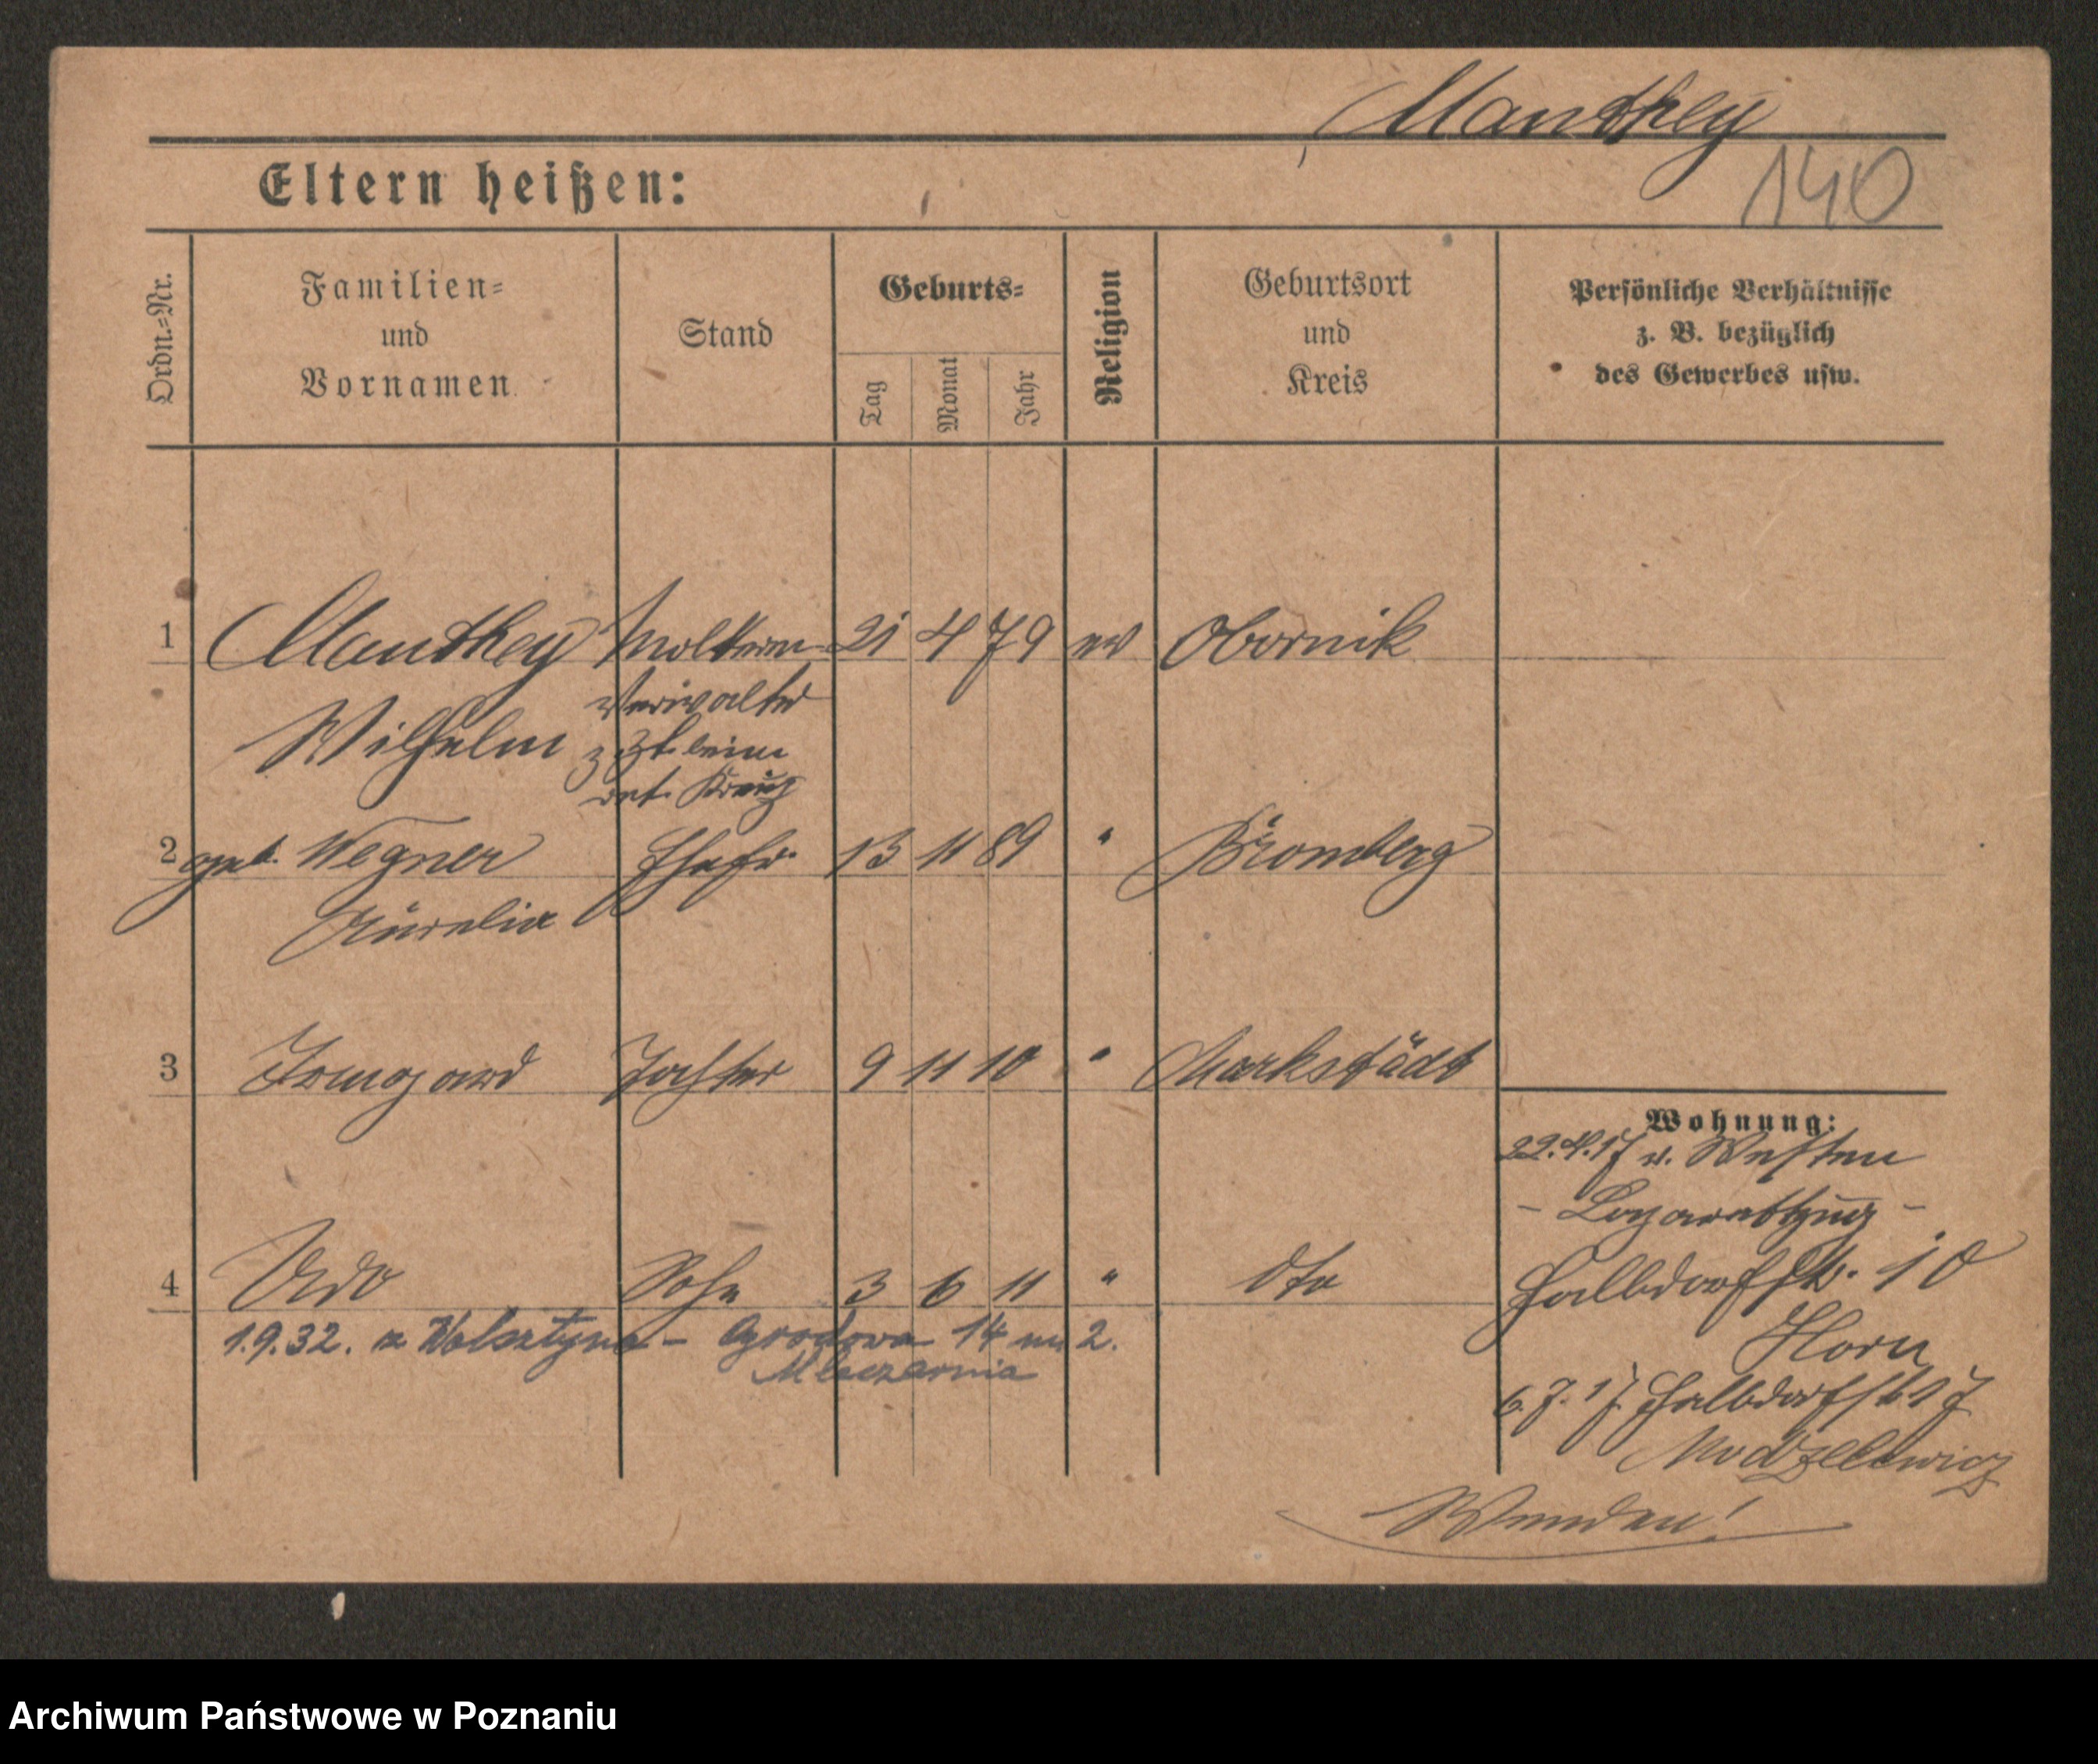 Manthey
140
Eltern heißen:
Ordn.=Nr.
Familien=
und
Vornamen
Stand
Geburts=
Tag
Monat
Jahr
Religion
Geburtsort
und
Kreis
Persönliche Verhältnisse
z. B. bezüglich
des Gewerbes usw.
1 Manthey Molkerei- 21 4 79 ev Obornik
Verwalter
Wilhelm z Zt. beim
rot. Kreuz
2 geb. Wegner Ehefr. 13 11 89 " Bromberg
Aurelia
3 Irmgard Tochter 9 11 10 " Markstädt
Wohnung:
22.4.17 v. Westen
- Lazarettzug -
4 Udo Sohn 3 6 11 " dto
Halbdorfstr. 10
Horn
1.9.32. z Wolsztyna - Ogrodowa 14 m 2.
Mleczarnia
6.7.17 Halbdorfstr 17
Modzelewicz
Wenden!
Archiwum Państwowe w Poznaniu